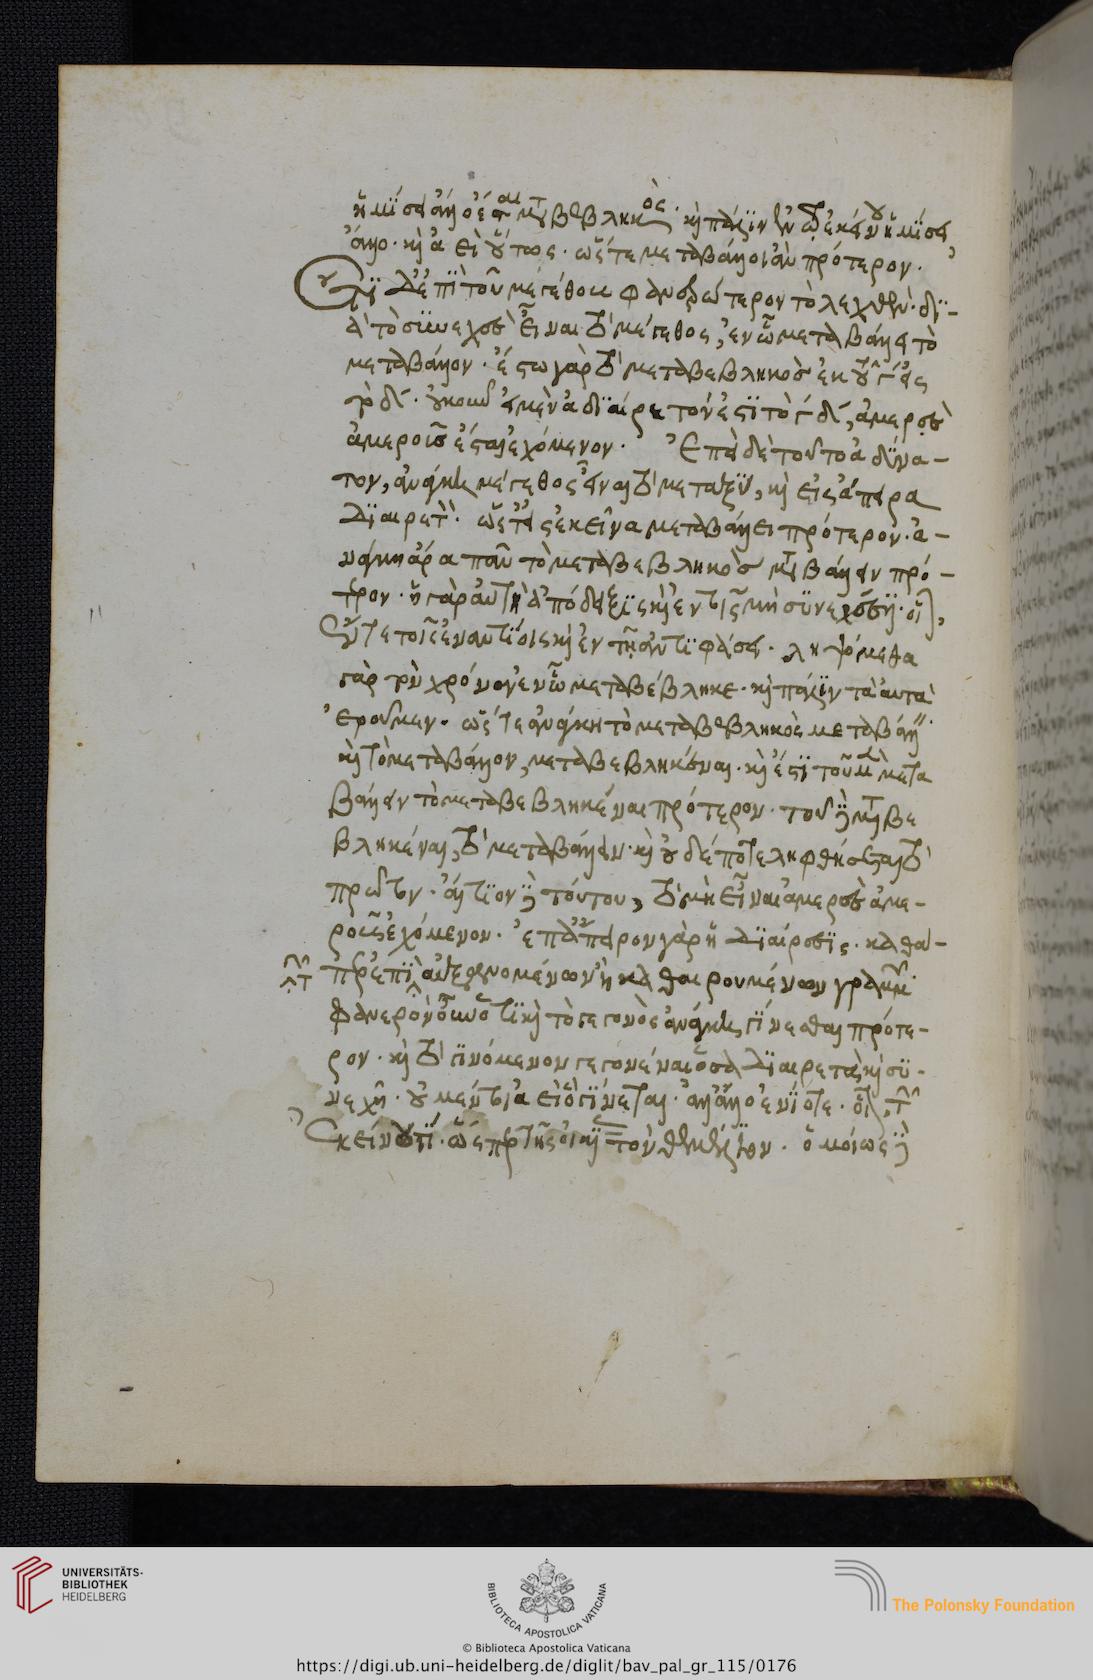 ἡμίσει ἄλλο ἔσται μεταβεβληκός· καὶ πάλιν ἐν τῷ ἐκείνου ἡμίσει
ἄλλο· καὶ ἀεὶ οὕτως· ὥστε μεταβάλλοι ἂν πρότερον·
Ἔτι δ' ἐπὶ τοῦ μεγέθους φανερώτερον τὸ λεχθέν· δι-
ὰ τὸ συνεχὲς εἶναι τὸ μέγεθος, ἐν ᾧ μεταβάλλει τὸ
μεταβάλλον· ἔστω γάρ τι μεταβεβληκὸς ἐκ τοῦ γ εἰς
τὸ δ· οὐκοῦν εἰ μὲν ἀδιαίρετόν ἐστι τὸ γδ, ἀμερὲς
ἀμεροῦς ἔσται ἐχόμενον· Ἐπεὶ δὲ τοῦτο ἀδύνα-
τον, ἀνάγκη μέγεθος εἶναι τὸ μεταξύ, καὶ εἰς ἄπειρα
διαιρετόν· ὥστ' εἰς ἐκεῖνα μεταβάλλει πρότερον· ἀ-
νάγκη ἄρα πᾶν τὸ μεταβεβληκὸς μεταβάλλειν πρό-
τερον· ἡ γὰρ αὐτὴ ἀπόδειξις καὶ ἐν τοῖς μὴ συνεχέσιν· οἷον,
ἔν τε τοῖς ἐναντίοις καὶ ἐν τῇ ἀντιφάσει· ληψόμεθα
γὰρ τὸν χρόνον ἐν ᾧ μεταβέβληκε· καὶ πάλιν ταὐτὰ
ἐροῦμεν· ὥστε ἀνάγκη τὸ μεταβεβληκὸς μεταβάλλειν
καὶ τὸ μεταβάλλον, μεταβεβληκέναι· καὶ ἔστι τοῦ μὲν μετα
βάλλειν τὸ μεταβεβληκέναι πρότερον· τοῦ δὲ μεταβε
βληκέναι, τὸ μεταβάλλειν· καὶ οὐδέποτε ληφθήσεται τὸ
πρῶτον· αἴτιον δὲ τούτου, τὸ μὴ εἶναι ἀμερὲς ἀμε-
ροῦς ἐχόμενον· ἐπ' ἄπειρον γὰρ ἡ διαίρεσις· καθά-
περ ἐπὶ αὐξανομένων καὶ καθαιρουμένων γραμμῶν·
φανερὸν οὖν ὅτι καὶ τὸ γεγονὸς ἀνάγκη γίνεσθαι πρότε-
ρον· καὶ τὸ γινόμενον γεγονέναι ὅσα διαιρετὰ καὶ συ-
νεχῆ· οὐ μέντοι ἀεὶ ὃ γίνεται· ἀλλ' ἄλλο ἐνίοτε· οἷον, τῶν
Ἐκείνου τι· ὥσπερ τῆς οἰκίας τὸν θεμέλιον· ὁμοίως δὲ
UNIVERSITÄTS-
BIBLIOTHEK
HEIDELBERG
BIBLIOTECA APOSTOLICA VATICANA
The Polonsky Foundation
© Biblioteca Apostolica Vaticana
https://digi.ub.uni-heidelberg.de/diglit/bav_pal_gr_115/0176